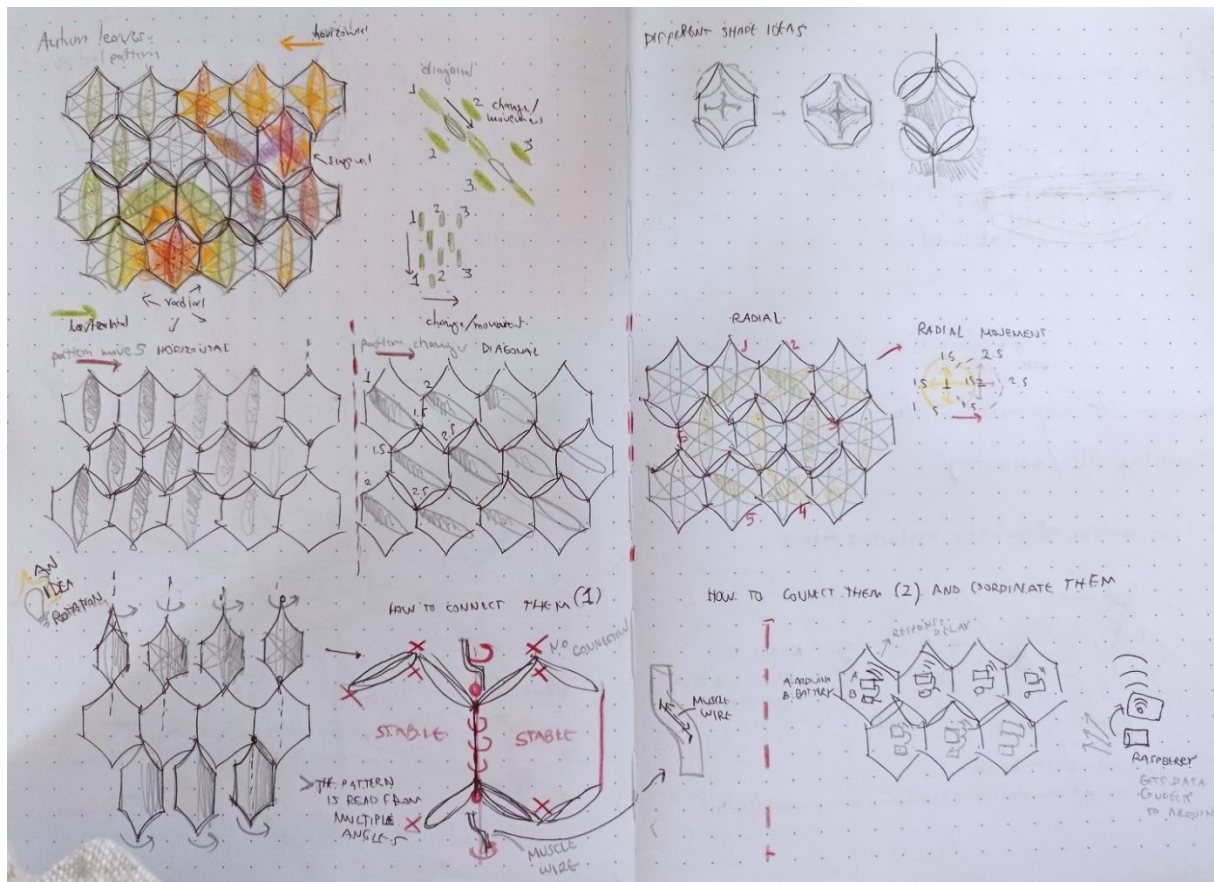 Autum leaves
pattern
horizontal
diagonal
1
2
change/
movement
2
3
3
radial
1 2 3
1 2 3
change/movement
horizontal
pattern moves HORIZONTAL
pattern change DIAGONAL
1
2
1.5
1.5
2.5
2
2.5
AN
IDEA
ROTATION
HOW TO CONNECT THEM (1)
NO
CONNECTION
STABLE
STABLE
> THE PATTERN
IS READ FROM
MULTIPLE
ANGLES
MUSCLE
WIRE
DIFFERENT SHAPE IDEAS
RADIAL
1
2
3
6
5
4
RADIAL MOVEMENT
1.5
2.5
1.5
1
1.5
2
2.5
HOW TO CONNECT THEM (2) AND COORDINATE THEM
MUSCLE
WIRE
RESPONSE
DELAY
A: ARDUINO
B: BATTERY
A
B
RASPBERRY
GETS DATA
CONNECTS
TO ARDUIN